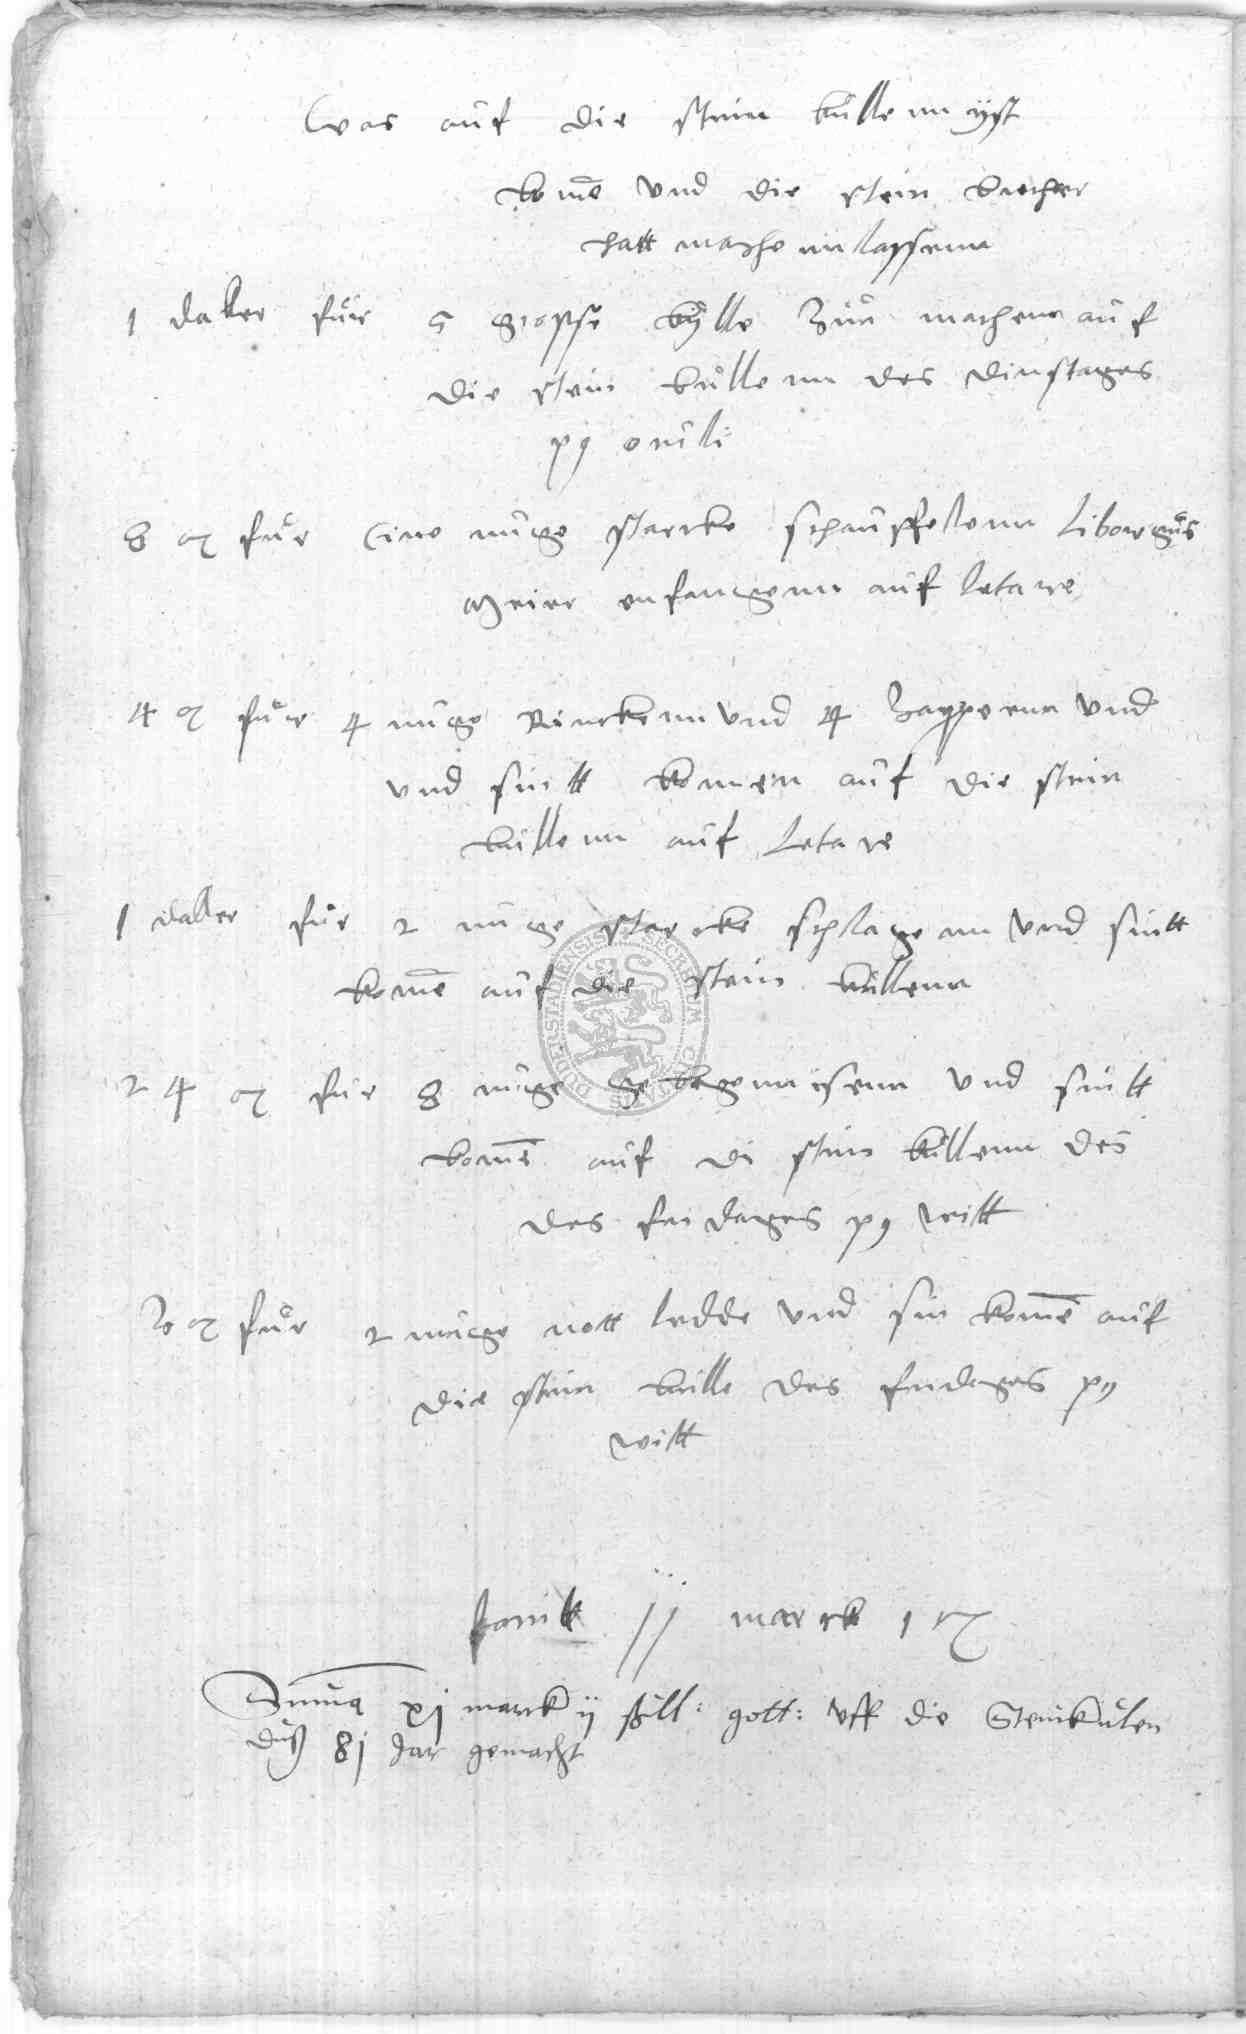 Was auf die stein kullenn ist
kome und die stein brecher
hatt machenn lassenn
1 daller fur 5 grosse kylle zu machenn auf
die stein kullenn des dinstages
py oculi
8 ß fur eine nuge starcke schauffelenn liborgus
Meier enfangenn auf letare
4 ß fur 4 nuge Rinckenn und 4 zappenn und
und sintt komen auf die stein
kullenn auf Letare
1 daller fur 2 nuge starcke schlagenn und sintt
kome auf die stein kullenn
24 ß fur 8 nuge isenn und sintt
kome auf di stein kullenn des
des fridages py witt
ß fur 2 nuge nott ledde und sin kome auf
die stein kulle des fridages py
witt
facitt jj marck 1 ß
Summa xj marck ij ßill: gott: uff die Steinkulen
duß 8j Jar gemacht
DUDERSTADIENSIS SECRETUM CIVITATIS